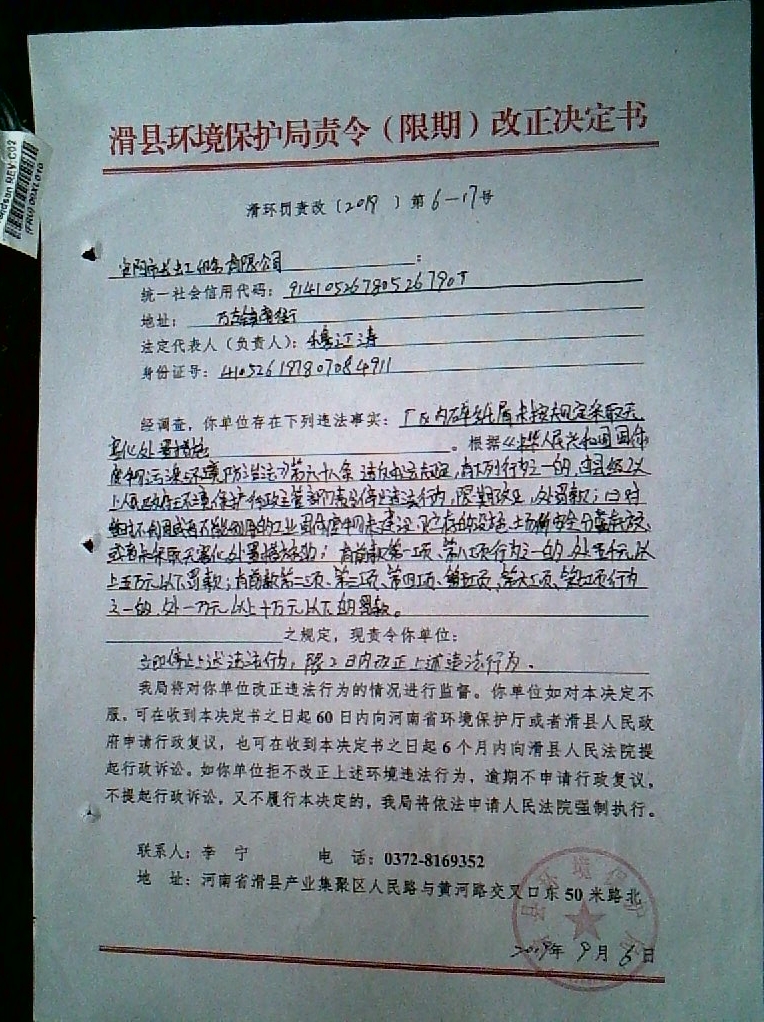 滑县环境保护局责令（限期）改正决定书
滑环罚责改〔2019 〕第6-17号
有限公司 :
统一社会信用代码：91410526780526790T
地址：
法定代表人（负责人）：穆江涛
身份证号：410526197807084911
经调查，你单位存在下列违法事实：厂区内碎纸屑未按规定采取无
害化处置措施 。根据《中华人民共和国固体
废物污染环境防治法》第六十八条 违反本法规定，有下列行为之一的，由县级以
上人民政府环境保护行政主管部门责令停止违法行为，限期改正，处罚款：（二）对
暂时不利用或者不能利用的工业固体废物未建设贮存的设施、场所安全分类存放，
或者未采取无害化处置措施的；有前款第一项、第八项行为之一的，处五千元以
上五万元以下罚款；有前款第二项、第三项、第四项、第五项、第六项、第七项行为
之一的，处一万元以上十万元以下的罚款。
之规定，现责令你单位：
立即停止上述违法行为，限2日内改正上述违法行为。
我局将对你单位改正违法行为的情况进行监督。你单位如对本决定不
服，可在收到本决定书之日起60日内向河南省环境保护厅或者滑县人民政
府申请行政复议，也可在收到本决定书之日起6个月内向滑县人民法院提
起行政诉讼。如你单位拒不改正上述环境违法行为，逾期不申请行政复议，
不提起行政诉讼，又不履行本决定的，我局将依法申请人民法院强制执行。
联系人：李 宁 电 话：0372-8169352
地 址：河南省滑县产业集聚区人民路与黄河路交叉口东50米路北
2019年9月6日